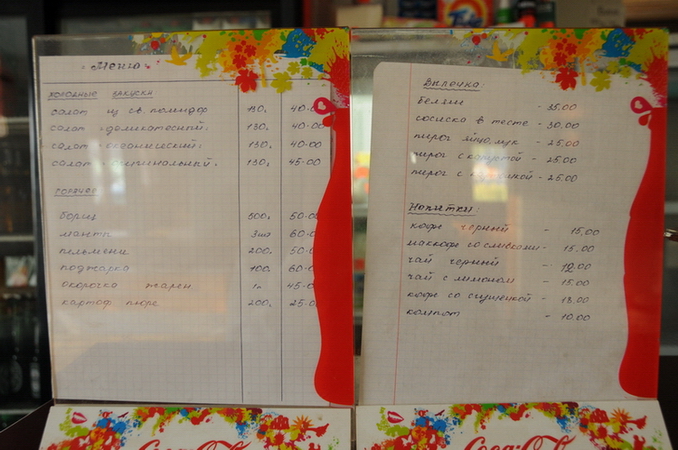 Меню
Холодные закуски
салат из св. помидор 130г 40-00
салат "деликатесный" 130г 40-00
салат "океанический" 130г 40-00
салат "оригинальный" 130г 45-00
Горячее
Борщ 500г 50-00
манты 3шт 60-00
пельмени 200г 50-0
поджарка 100г 60-0
окорочка жарен 45-0
картоф пюре 200г 25-0
Выпечка:
Беляш - 35.00
сосиска в тесте - 30.00
пирог яйцо, лук - 25.00
пирог с капустой - 25.00
пирог с - 25.00
Напитки:
кофе черный - 15.00
маккофе со сливками - 15.00
чай черный - 12.00
чай с лимоном - 15.00
кофе со сгущенкой - 18.00
компот - 10.00
Tide
Coca-Cola
Coca-Cola